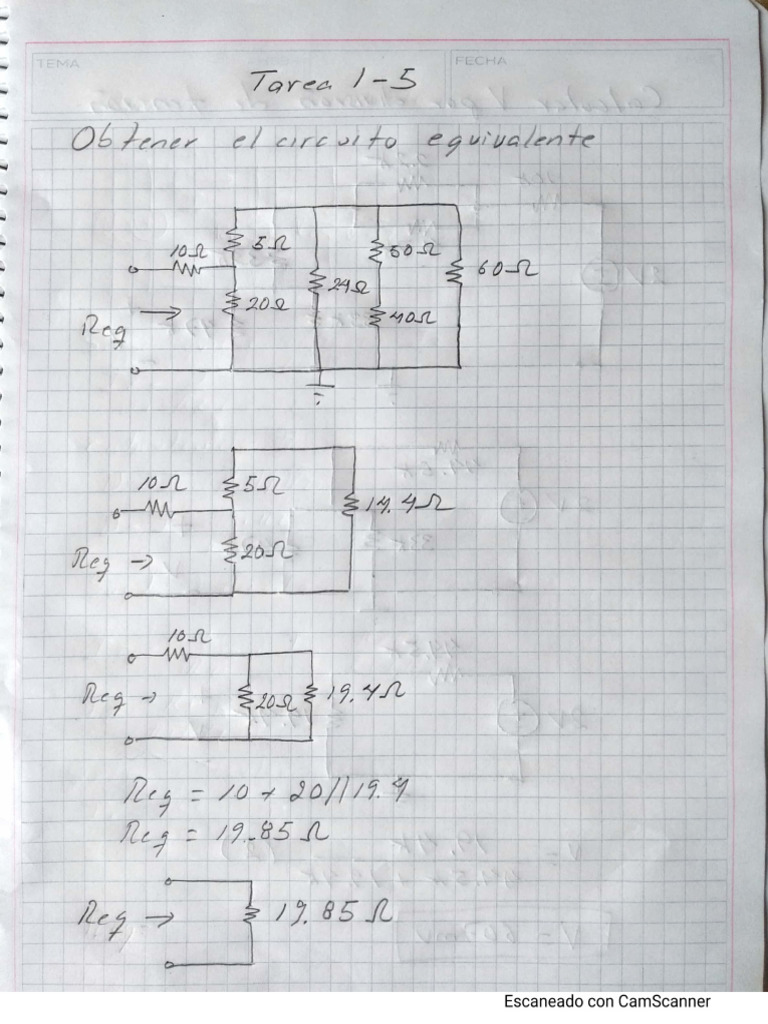 TEMA
FECHA
Tarea 1-5
Obtener el circuito equivalente
10Ω
5Ω
20Ω
24Ω
60Ω
40Ω
60Ω
Req →
10Ω
5Ω
20Ω
14.4Ω
Req →
10Ω
20Ω
19.4Ω
Req →
Req = 10 + 20//19.4
Req = 19.85 Ω
Req →
19.85 Ω
Escaneado con CamScanner